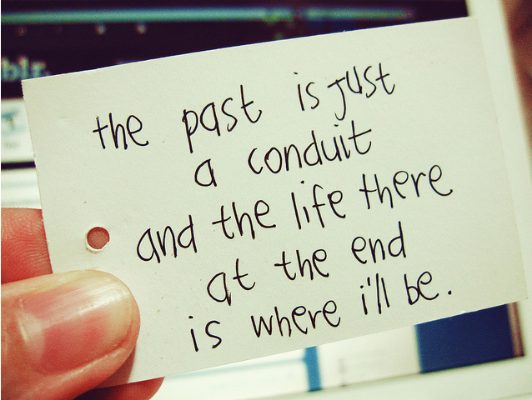 blr.
the past is just
a conduit
and the life there
at the end
is where i'll be.